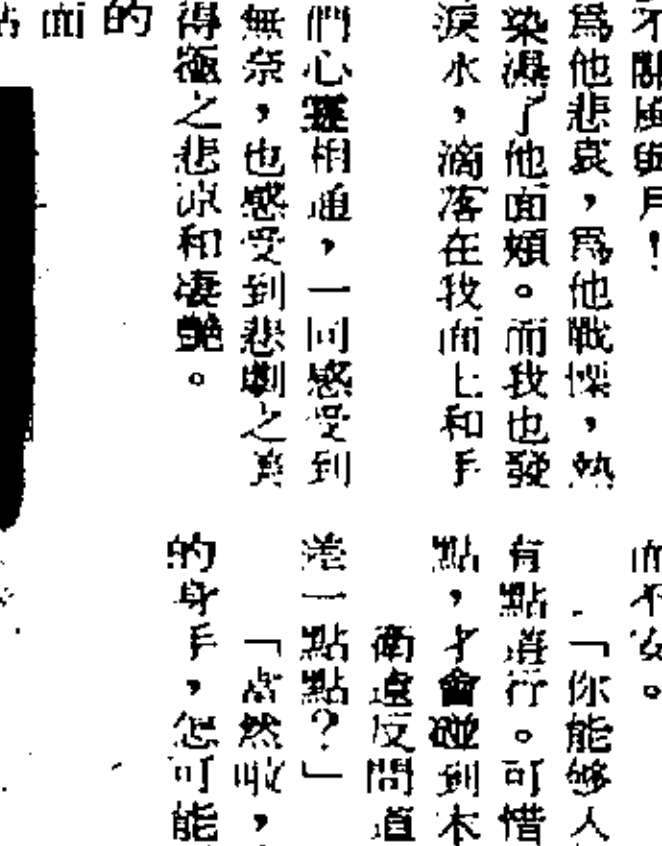 不關風與月！
爲他悲哀，爲他戰慄，熱
染濕了他面頰。而我也發
淚水，滴落在我面上和手
們心靈相通，一同感受到
無奈，也感受到悲劇之美
得極之悲涼和凄艷。
的
而
而不安。
「你能够人
有點道行。可惜
點，才會碰到木
衛遠反問道
港一點點？」
「當然啦，
的身手，怎可能